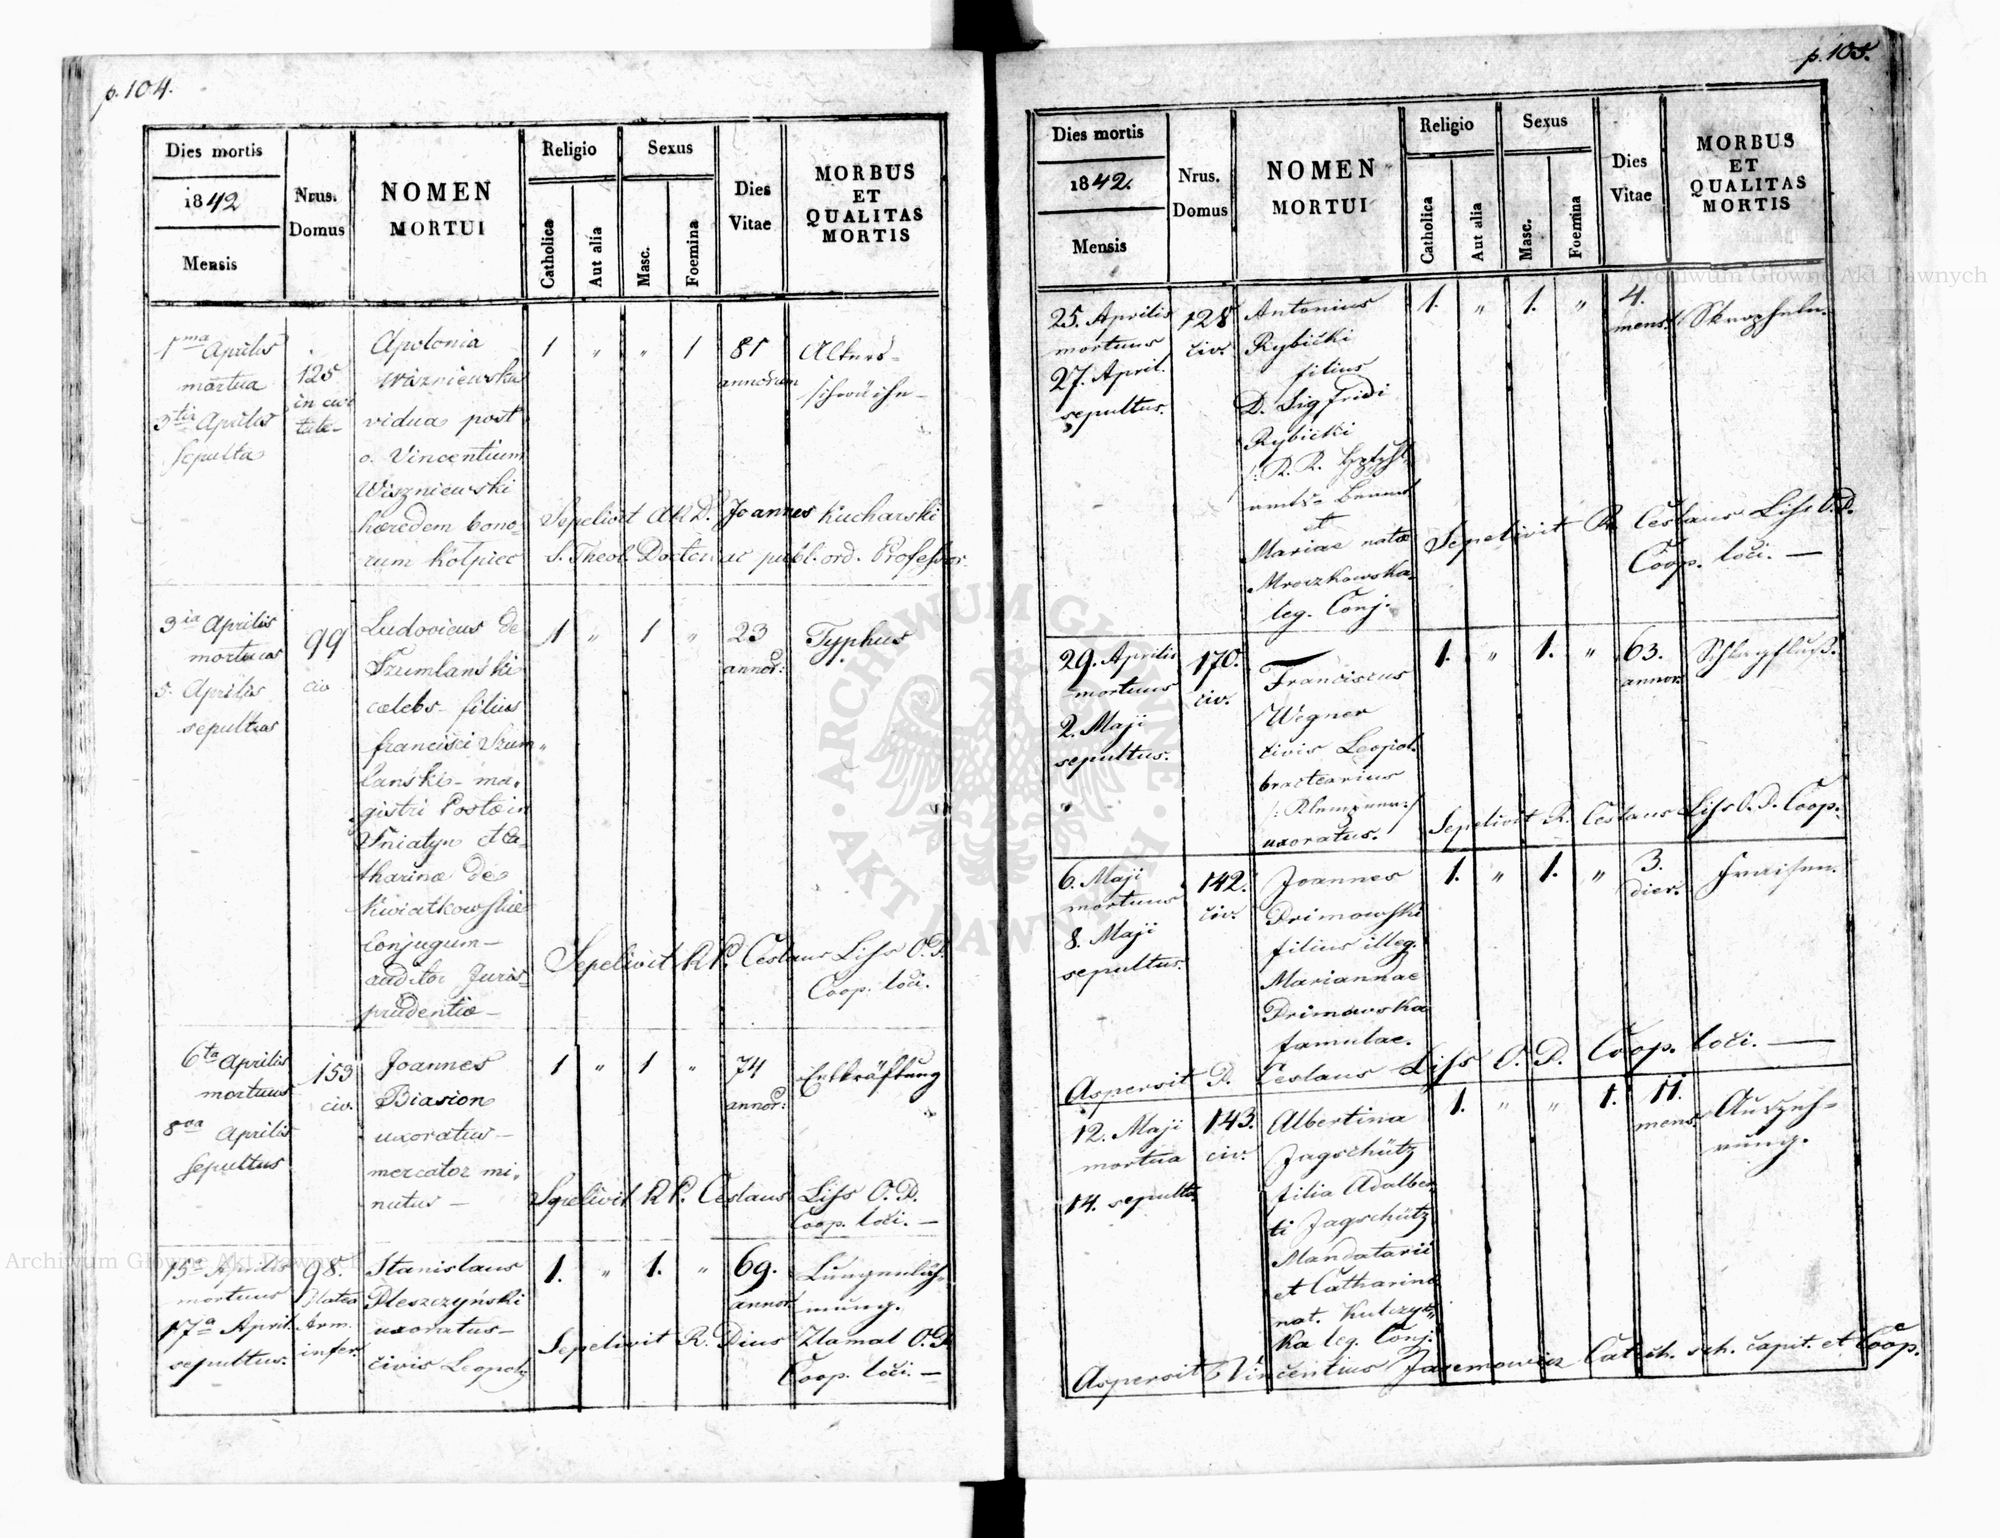 p. 104.
Dies mortis
1842
Mensis
Nrus.
Domus
NOMEN
MORTUI
Religio
Catholica
Aut alia
Sexus
Masc.
Foemina
Dies
Vitae
MORBUS
ET
QUALITAS
MORTIS
1ma Aprilis
mortua
3tia Aprilis
sepulta
125
in civi
tate
Apolonia
Wiszniewska
vidua post
o. Vincentium
Wiszniewski
hæredem bono-
rum Kołpiec
1 " " 1
81
annorum
Alters-
schwäche
Sepelivit A.R.D. Joannes Kucharski
S. Theol. Doctor ac publ. ord. Professor.
3ia Aprilis
mortuus
5. Aprilis
sepultus
99
civ
Ludovicus de
Szumlański
cælebs filius
francisci Szum
lański ma-
gistri Postæ in
Sniatyn et Ca-
tharinæ de
Kwiatkowskie
Conjugum
auditor Juris-
prudentiæ
1 " 1 "
23
annor:
Typhus
Sepelivit R.P. Ceslaus Liss O.P.
Coop. loci.
6ta Aprilis
mortuus
8va Aprilis
sepultus
153
civ.
Joannes
Biasion
uxoratus
mercator mi-
nutus
1 " 1 "
74
annor:
Entkräftung
Sepelivit R.P. Ceslaus Liss O.P.
Coop. loci.
15a Aprilis
mortuus
17a April.
sepultus.
98.
Platea
Arm.
infer.
Stanislaus
Pleszczyński
uxoratus
civis Leopol.
1. " 1. "
69.
annor.
Lungenläh-
mung.
Sepelivit R. Pius Zlamal O.P.
Coop. loci.
p. 105.
Dies mortis
1842.
Mensis
Nrus.
Domus
NOMEN
MORTUI
Religio
Catholica
Aut alia
Sexus
Masc.
Foemina
Dies
Vitae
MORBUS
ET
QUALITAS
MORTIS
25. Aprilis
mortuus
27. April.
sepultus.
128
civ.
Antonius
Rybicki
filius
D. Sigfridi
Rybicki
et
Mariae natæ
Mroczkowska
leg. Conj.
1. " 1. "
4.
mens.
Skropheln.
Sepelivit R. Ceslaus Liss O.P.
Coop. loci.
29. Aprilis
mortuus
2. Maji
sepultus.
170.
civ.
Franciscus
Wegner
civis Leopol.
bractearius
/: Klempner :/
uxoratus.
1. " 1. "
63.
annor.
Schlagfluß.
Sepelivit R. Ceslaus Liss O.P. Coop.
6. Maji
mortuus
8. Maji
sepultus.
142.
civ.
Joannes
Primowski
filius illeg.
Mariannae
Primowska
famulae.
1. " 1. "
3.
dier.
Fraisen.
Aspersit P. Ceslaus Liss O.P. Coop. loci.
12. Maji
mortua
14. sepulta
143.
civ.
Albertina
Jagschütz
filia Adalber-
ti Jagschütz
Mandatarii
et Catharina
nat. Kulczyc-
ka leg. Conj.
1. " " 1.
11.
mens.
Auszeh-
rung.
Aspersit Vincentius Jaremowicz Catech. sch. capit. et Coop.
Archiwum Główne Akt Dawnych
Archiwum Główne Akt Dawnych
ARCHIWUM GŁÓWNE
AKT DAWNYCH